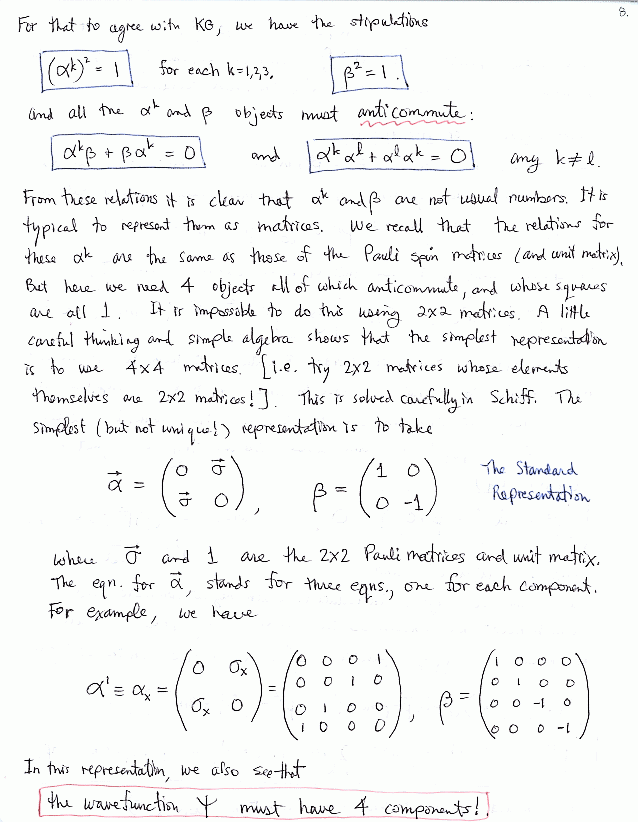 8.
For that to agree with KG, we have the stipulations
(αᵏ)² = 1 for each k=1,2,3, β² = 1.
and all the αᵏ and β objects must anticommute:
αᵏβ + βαᵏ = 0 and αᵏαˡ + αˡαᵏ = 0 any k≠l.
From these relations it is clear that αᵏ and β are not usual numbers. It is
typical to represent them as matrices. We recall that the relations for
these αᵏ are the same as those of the Pauli spin matrices (and unit matrix).
But here we need 4 objects all of which anticommute, and whose squares
are all 1. It is impossible to do this using 2x2 matrices. A little
careful thinking and simple algebra shows that the simplest representation
is to use 4x4 matrices. [i.e. try 2x2 matrices whose elements
themselves are 2x2 matrices!]. This is solved carefully in Schiff. The
simplest (but not unique!) representation is to take
α⃗ = (0 σ⃗ / σ⃗ 0), β = (1 0 / 0 -1) The Standard
Representation
where σ⃗ and 1 are the 2x2 Pauli matrices and unit matrix.
The eqn. for α⃗, stands for three eqns., one for each component.
For example, we have
α¹ ≡ αₓ = (0 σₓ / σₓ 0) = (0 0 0 1 / 0 0 1 0 / 0 1 0 0 / 1 0 0 0), β = (1 0 0 0 / 0 1 0 0 / 0 0 -1 0 / 0 0 0 -1)
In this representation, we also see that
the wavefunction Ψ must have 4 components!